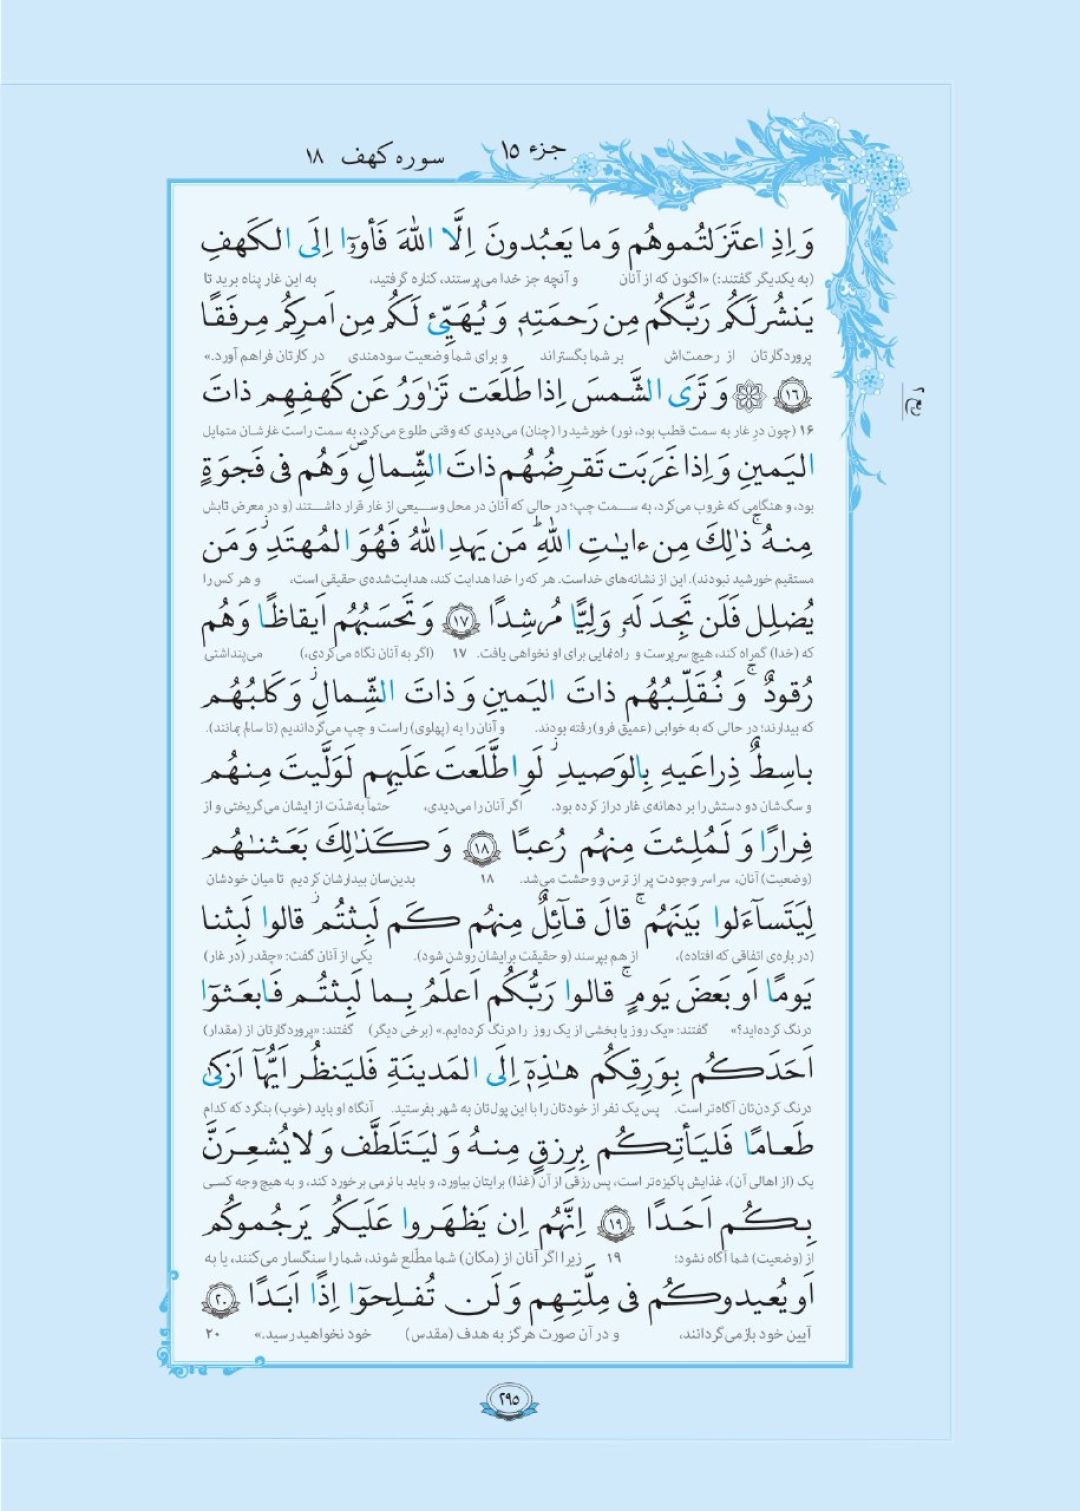 جزء ۱۵
سوره کهف ۱۸
وَ اِذِ اعتَزَلتُموهُم وَ ما یَعبُدونَ اِلَّا اللهَ فَأوۥٓا اِلَی الکَهفِ
(به یکدیگر گفتند:) «اکنون که از آنان و آنچه جز خدا می‌پرستند، کناره گرفتید، به این غار پناه برید تا
یَنشُر لَکُم رَبُّکُم مِن رَحمَتِهٖ وَ یُهَیِّئ لَکُم مِن اَمرِکُم مِرفَقًا
پروردگارتان از رحمت‌اش بر شما بگستراند و برای شما وضعیت سودمندی در کارتان فراهم آورد.»
۱۶ وَ تَرَی الشَّمسَ اِذا طَلَعَت تَزٰوَرُ عَن کَهفِهِم ذاتَ
ربع ۲
۱۶ (چون درِ غار به سمت قطب بود، نور) خورشید را (چنان) می‌دیدی که وقتی طلوع می‌کرد، به سمت راست غارشان متمایل
الیَمینِ وَ اِذا غَرَبَت تَقرِضُهُم ذاتَ الشِّمالِ ۖ وَ هُم فی فَجوَةٍ
بود، و هنگامی که غروب می‌کرد، به سمت چپ؛ در حالی که آنان در محل وسیعی از غار قرار داشتند (و در معرض تابش
مِنهُ ۚ ذٰلِكَ مِن ءایٰتِ اللهِ ۗ مَن یَهدِ اللهُ فَهُوَ المُهتَدِ ۖ وَ مَن
مستقیم خورشید نبودند). این از نشانه‌های خداست. هر که را خدا هدایت کند، هدایت‌شده‌ی حقیقی است، و هر کس را
یُضلِل فَلَن تَجِدَ لَهٗ وَلِیًّا مُرشِدًا ۱۷ وَ تَحسَبُهُم اَیقاظًا وَ هُم
که (خدا) گمراه کند، هیچ سرپرست و راه‌نمایی برای او نخواهی یافت. ۱۷ (اگر به آنان نگاه می‌کردی،) می‌پنداشتی
رُقودٌ ۚ وَ نُقَلِّبُهُم ذاتَ الیَمینِ وَ ذاتَ الشِّمالِ ۖ وَ کَلبُهُم
که بیدارند؛ در حالی که به خوابی (عمیق فرو) رفته بودند. و آنان را به (پهلوی) راست و چپ می‌گرداندیم (تا سالم بمانند).
باسِطٌ ذِراعَیهِ بِالوَصیدِ ۚ لَوِ اطَّلَعتَ عَلَیهِم لَوَلَّیتَ مِنهُم
و سگ‌شان دو دستش را بر دهانه‌ی غار دراز کرده بود. اگر آنان را می‌دیدی، حتماً به‌شدّت از ایشان می‌گریختی و از
فِرارًا وَ لَمُلِئتَ مِنهُم رُعبًا ۱۸ وَ کَذٰلِكَ بَعَثنٰهُم
(وضعیت) آنان، سراسر وجودت پر از ترس و وحشت می‌شد. ۱۸ بدین‌سان بیدارشان کردیم تا میان خودشان
لِیَتَسآءَلوا بَینَهُم ۚ قالَ قآئِلٌ مِنهُم کَم لَبِثتُم ۖ قالوا لَبِثنا
(درباره‌ی اتفاقی که افتاده)، از هم بپرسند (و حقیقت برایشان روشن شود). یکی از آنان گفت: «چقدر (در غار)
یَومًا اَو بَعضَ یَومٍ ۚ قالوا رَبُّکُم اَعلَمُ بِما لَبِثتُم فَابعَثوٓا
درنگ کرده‌اید؟» گفتند: «یک روز یا بخشی از یک روز را درنگ کرده‌ایم.» (برخی دیگر) گفتند: «پروردگارتان از (مقدار)
اَحَدَکُم بِوَرِقِکُم هٰذِهٖٓ اِلَی المَدینَةِ فَلیَنظُر اَیُّهآ اَزکیٰ
درنگ کردن‌تان آگاه‌تر است. پس یک نفر از خودتان را با این پول‌تان به شهر بفرستید. آنگاه او باید (خوب) بنگرد که کدام
طَعامًا فَلیَأتِکُم بِرِزقٍ مِنهُ وَ لیَتَلَطَّف وَ لا یُشعِرَنَّ
یک (از اهالی آن)، غذایش پاکیزه‌تر است، پس رزقی از آن (غذا) برایتان بیاورد، و باید با نرمی برخورد کند، و به هیچ وجه کسی
بِکُم اَحَدًا ۱۹ اِنَّهُم اِن یَظهَروا عَلَیکُم یَرجُموکُم
از (وضعیت) شما آگاه نشود؛ ۱۹ زیرا اگر آنان از (مکان) شما مطّلع شوند، شما را سنگسار می‌کنند، یا به
اَو یُعیدوکُم فی مِلَّتِهِم وَ لَن تُفلِحوٓا اِذًا اَبَدًا ۲۰
آیین خود بازمی‌گردانند، و در آن صورت هرگز به هدف (مقدس) خود نخواهید رسید.» ۲۰
۲۹۵